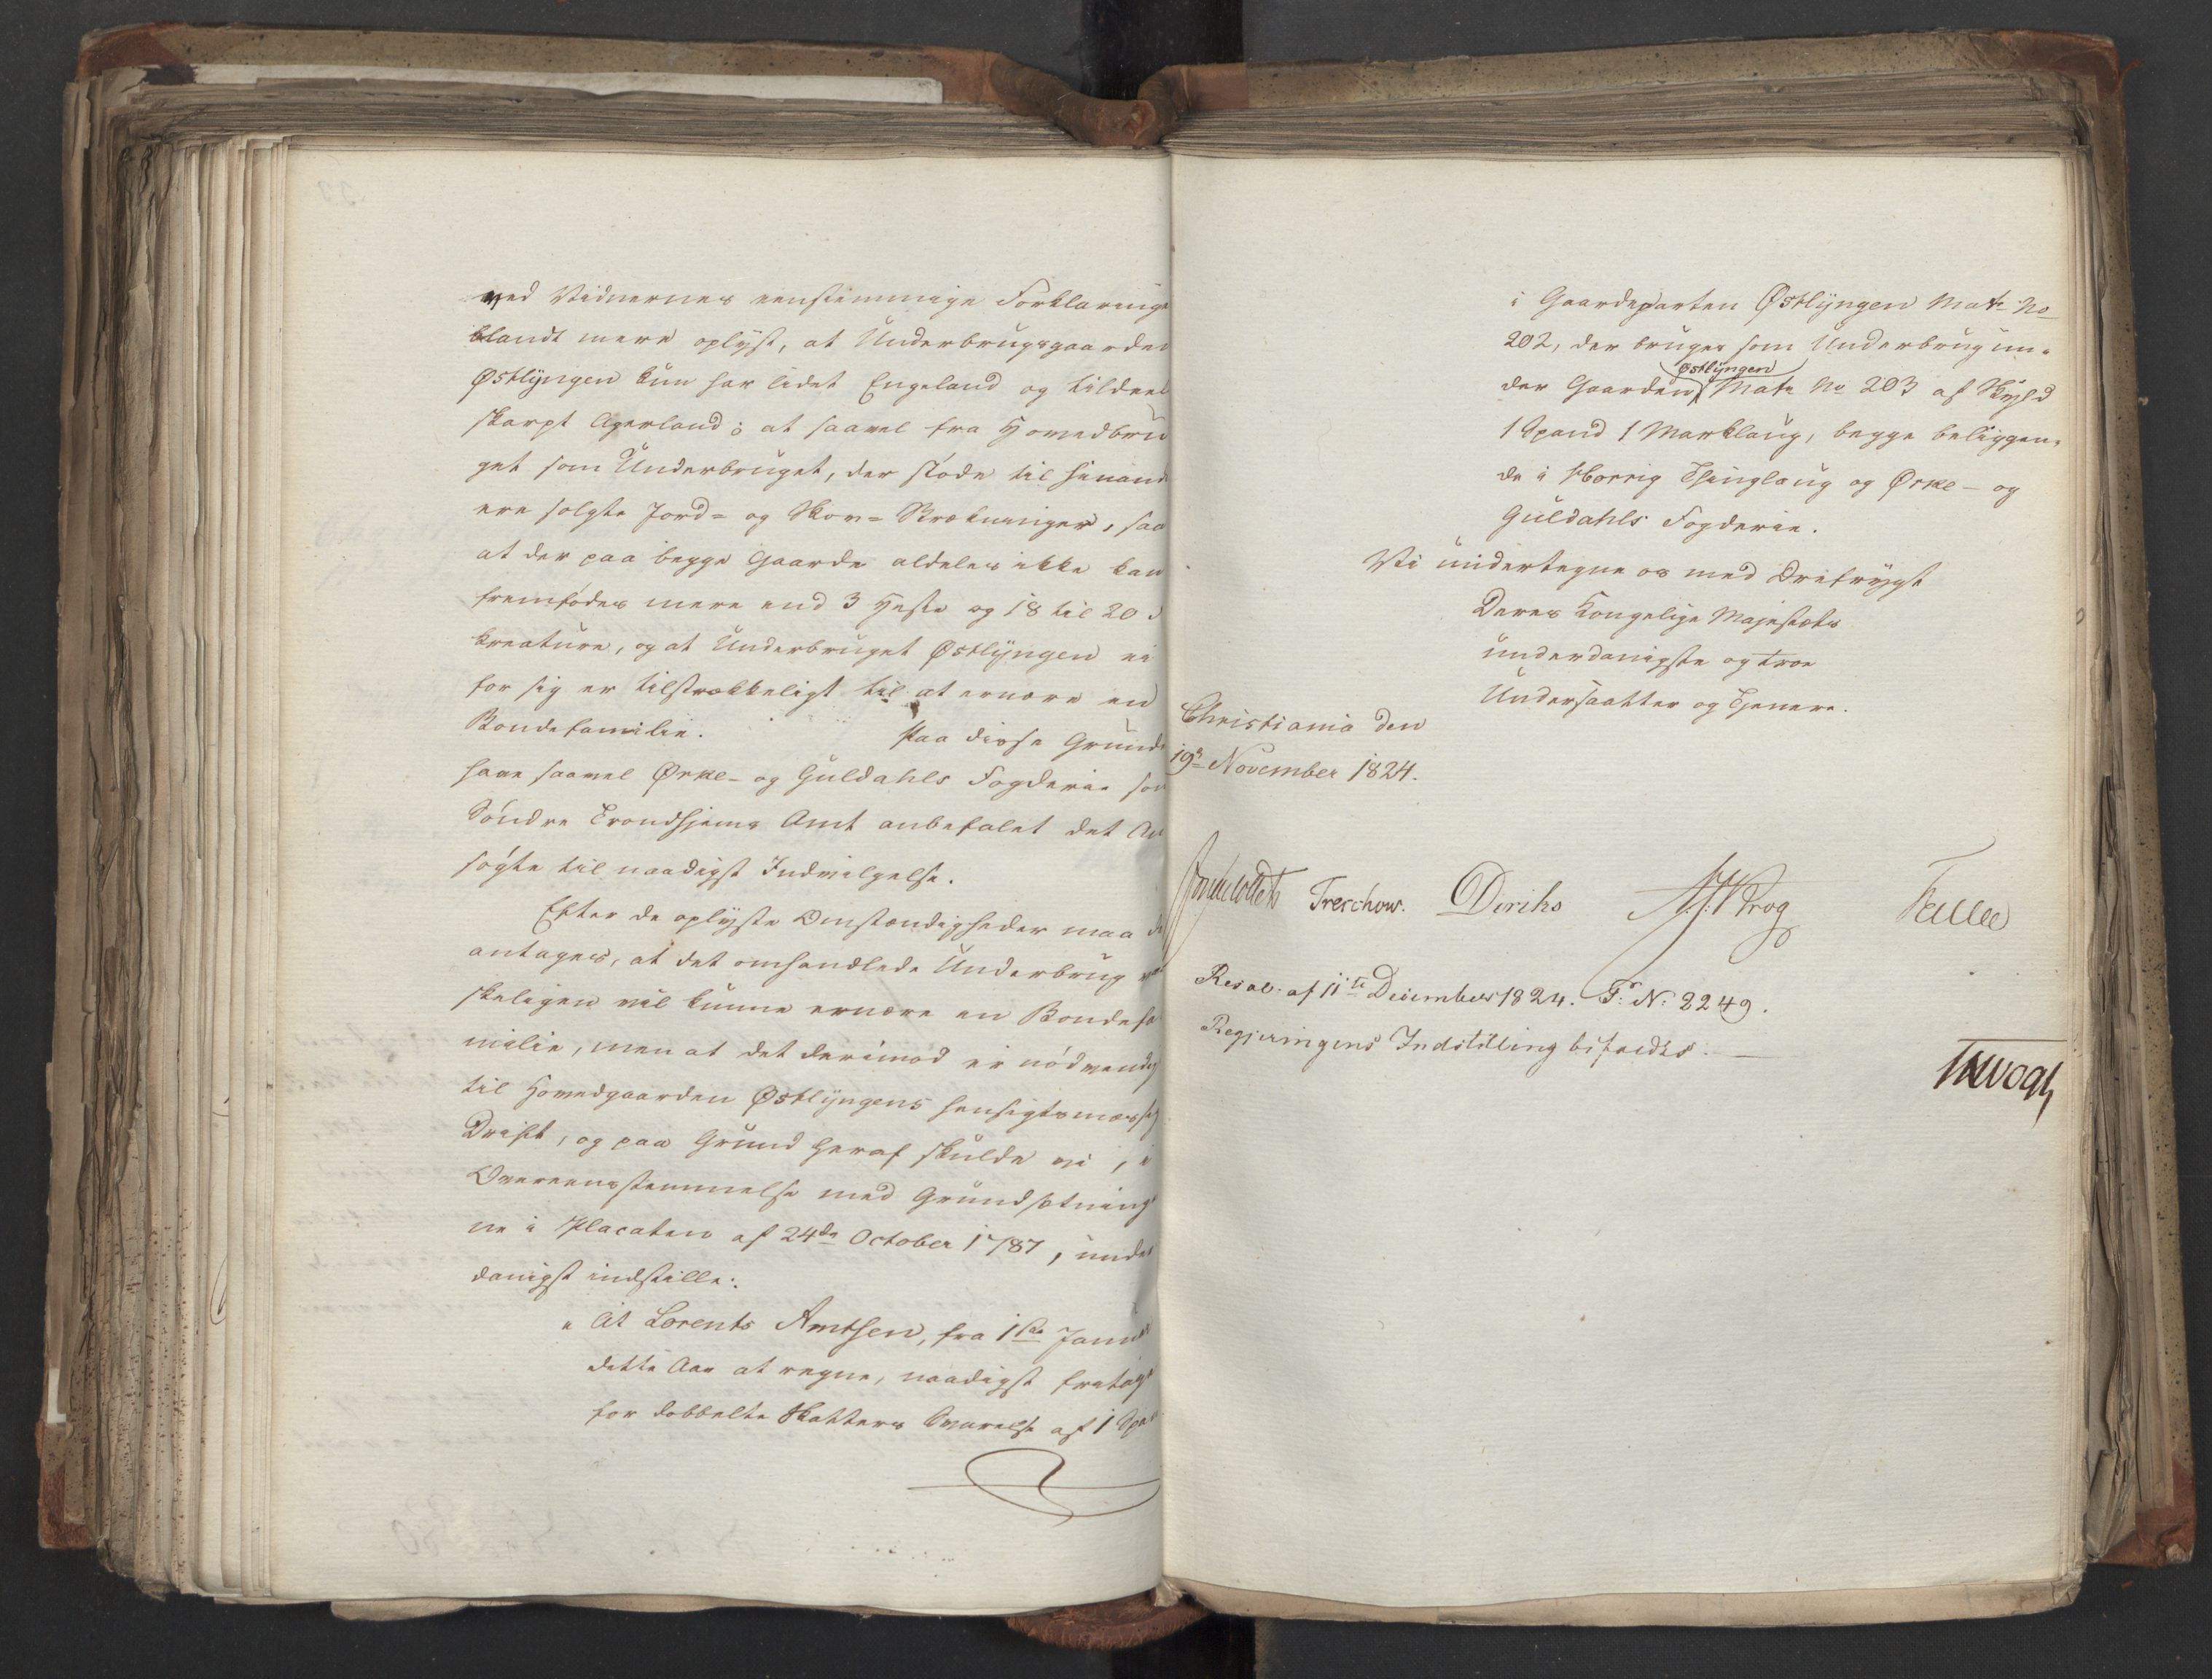 ved Vidnernes eenstemmige Forklaringe
blandt mere oplyst, at Underbrugsgaarden
Østlyngen kun har lidet Engeland og tildeel
skarpt Agerland; at saavel fra Hovedbru
get som Underbruget, der støde til hinand
ere solgte Jord- og Skov-Strækninger, saa
at der paa begge Gaarde aldeles ikke kan
fremfødes mere end 3 Heste og 18 til 20
kreature, og at Underbruget Østlyngen ei
for sig er tilstrækkeligt til at ernære en
Bondefamilie. Paa disse Grunde
have saavel Orke- og Guldahls Fogderie som
Søndre Trondhjems Amt anbefalet det An
søgte til naadigst Indvilgelse.
Efter de oplyste Omstændigheder maa de
antages, at det omhandlede Underbrug van
skeligen vil kunne ernære en Bondefa
milie, men at det derimod er nødvendig
til Hovedgaarden Østlyngens hensigtsmæssig
Drift, og paa Grund heraf skulde vi, i
Overeensstemmelse med Grundsætninge
ne i Placaten af 24de October 1787, under
danigst indstille:
"At Lorents Arntsen, fra 1ste Januar
dette Aar at regne, naadigst fritages
for dobbelte Skatters Svarelse af 1 Span
i Gaardeparten Østlyngen Mate No
202, der bruges som Underbrug un-
der Gaarden Østlyngen Mate No 203 af Skyld
1 Spand 1 Marklaug, begge beliggen-
de i Horrig Thinglaug og Orke- og
Guldahls Fogderie.
Vi undertegne os med Ærefrygt
Deres Kongelige Majestæts
underdanigste og troe
Undersaatter og Tjenere.
Christiania den
19de November 1824.
Jonas Collett Treschow. Diriks A. J. Krog Fasting
Resol: af 11te December 1824. F: N: 2249.
Regjeringens Indstilling bifaldes. —
JHVogt